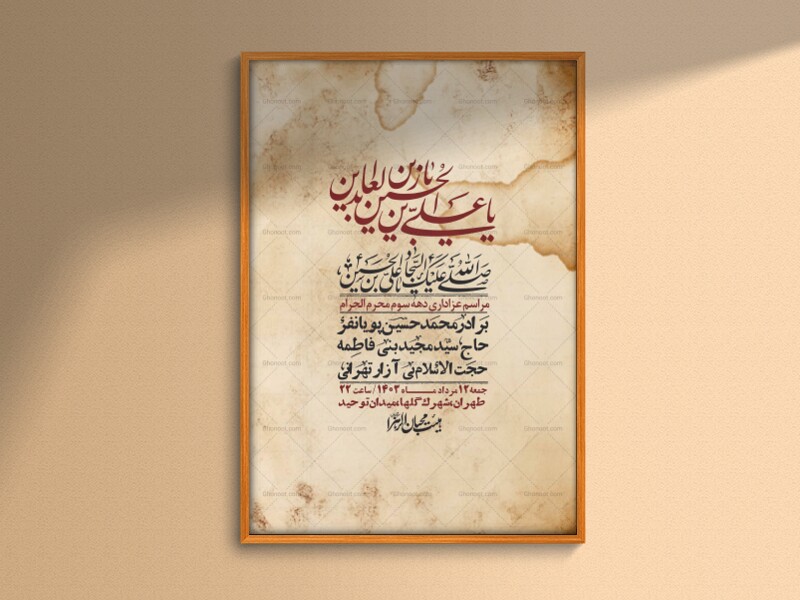 یا علی بن الحسین یا زین العابدین
صلی الله علیک یا علی بن الحسین السجاد
مراسم عزاداری دهه سوم محرم الحرام
برادر محمدحسین پویانفر
حاج سید مجید بنی فاطمه
حجت الاسلام بی آزار تهرانی
جمعه ۱۲ مرداد مـاه ۱۴۰۳ / ساعت ۲۲
طهران، شهرک گلها، میدان توحید
هیئت محبان الزهرا
Ghonoot.com